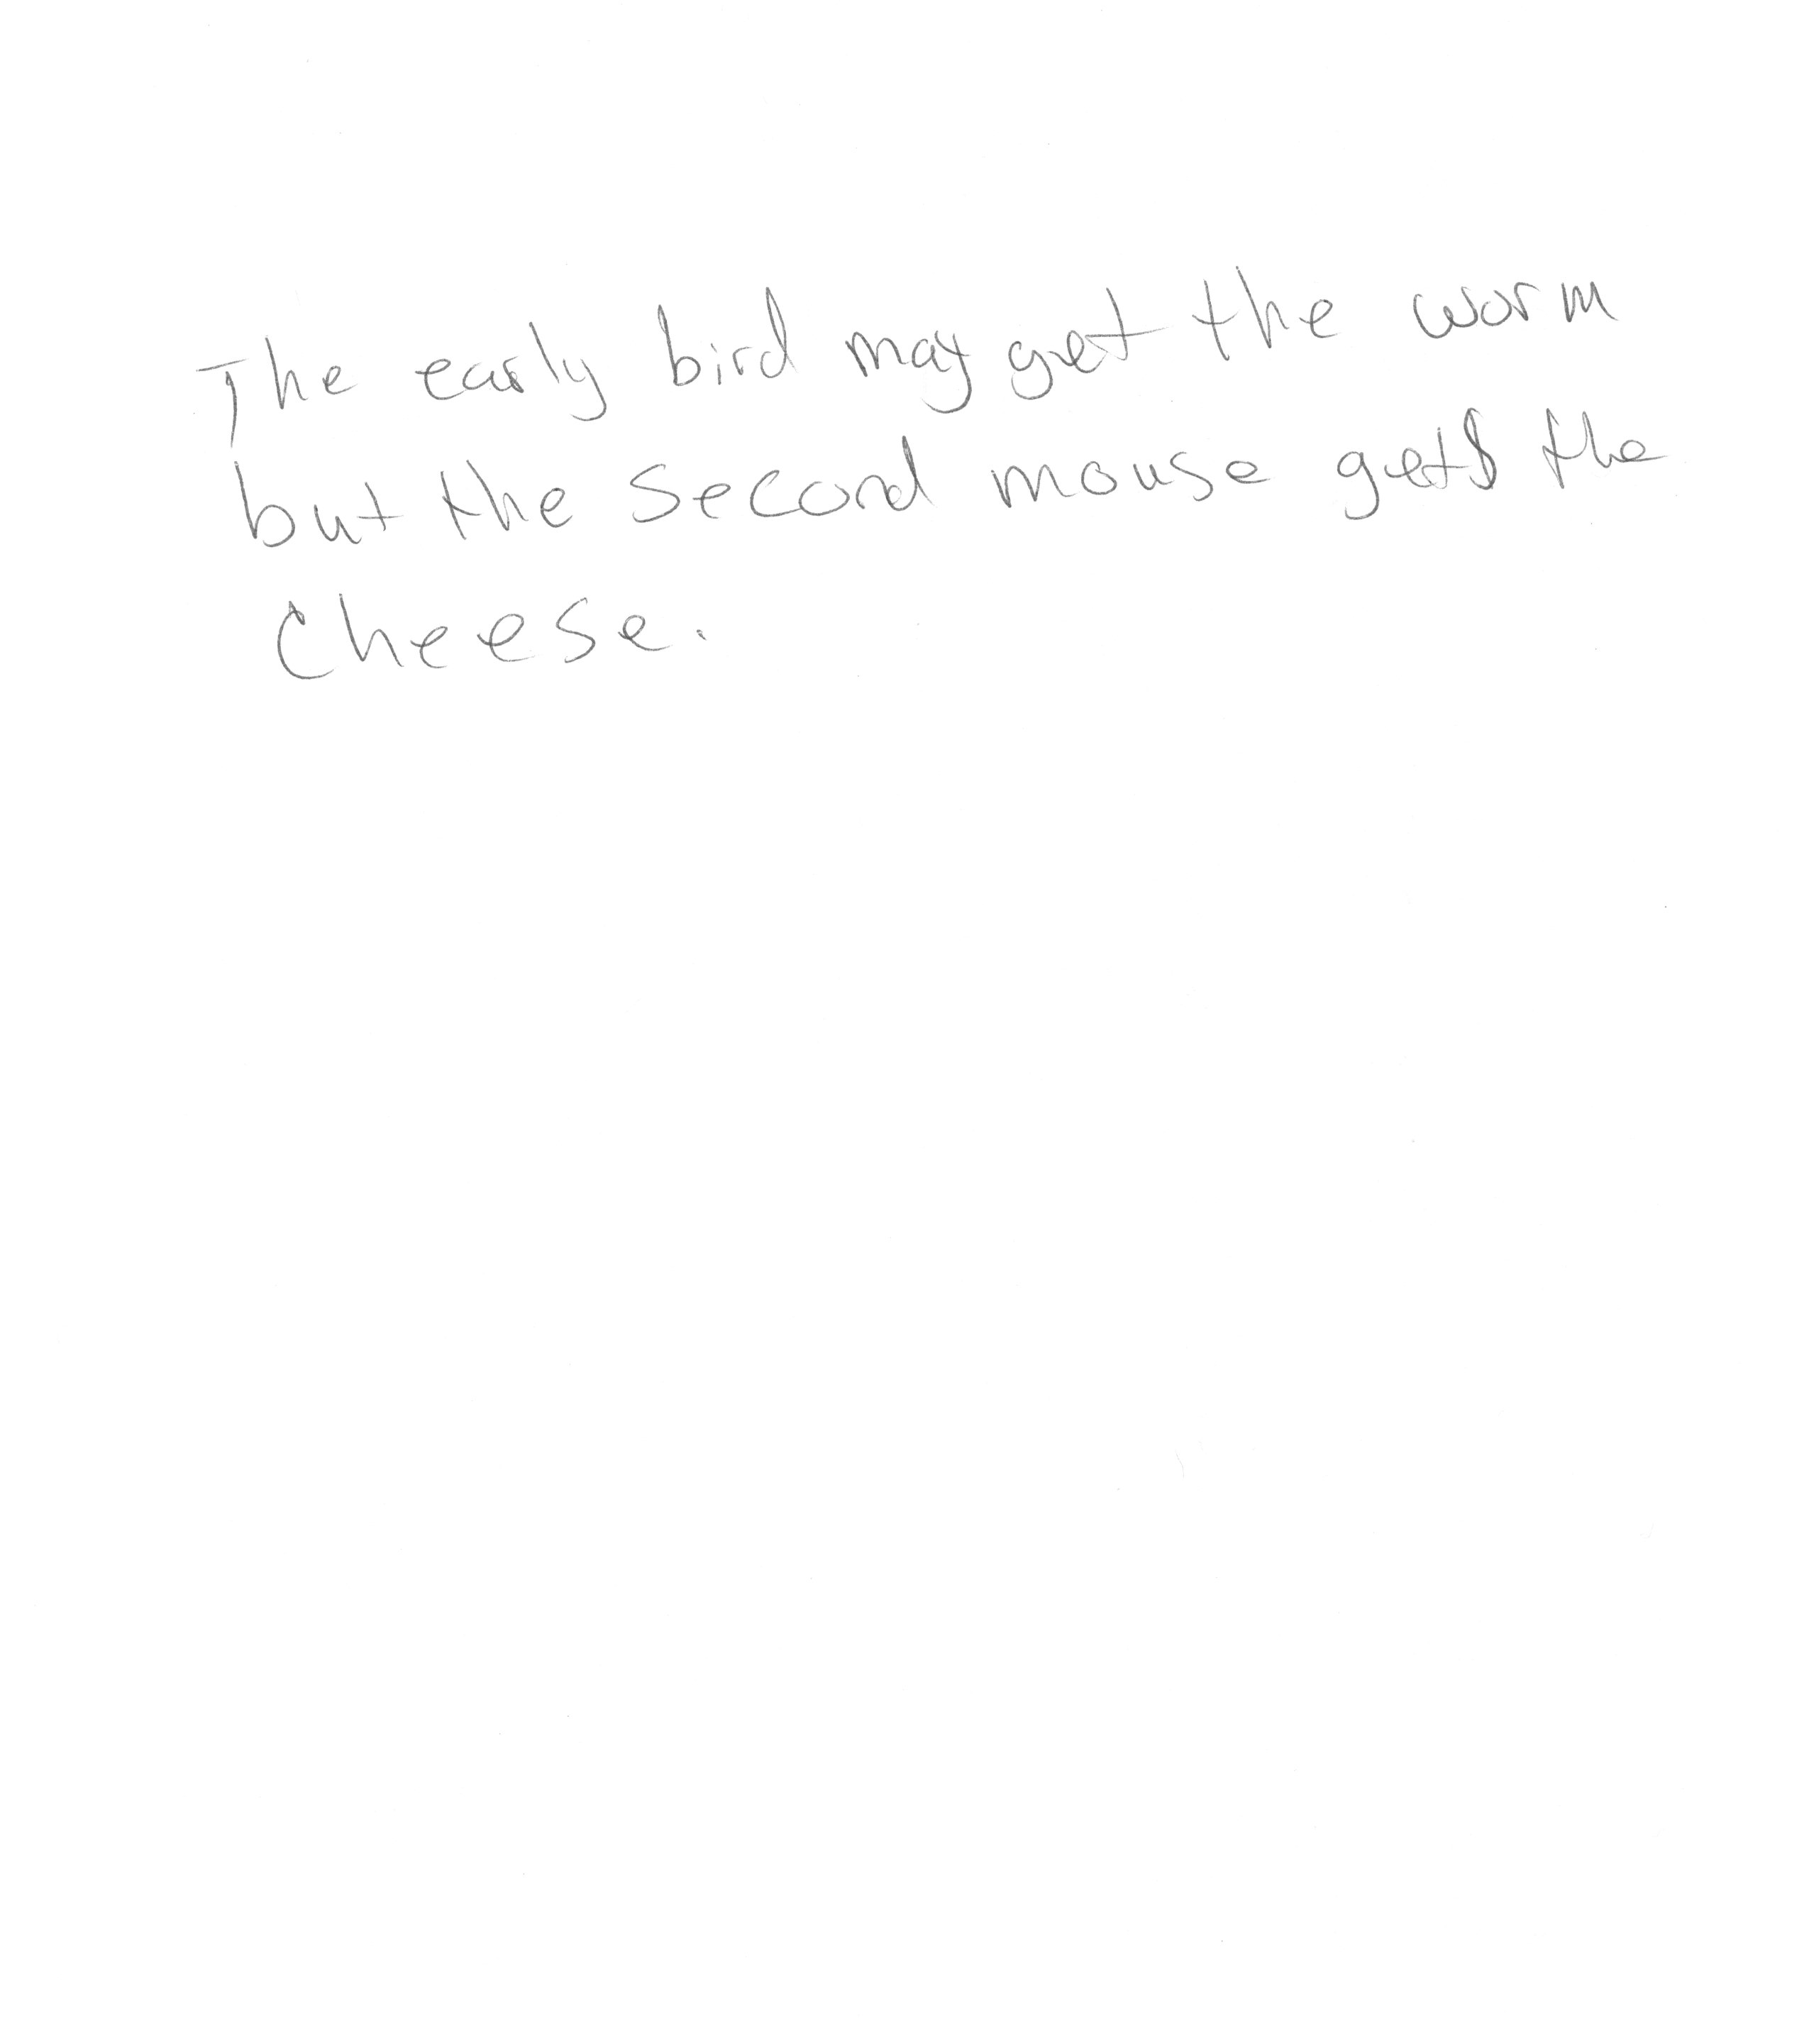 The early bird may get the worm
but the second mouse gets the
cheese.